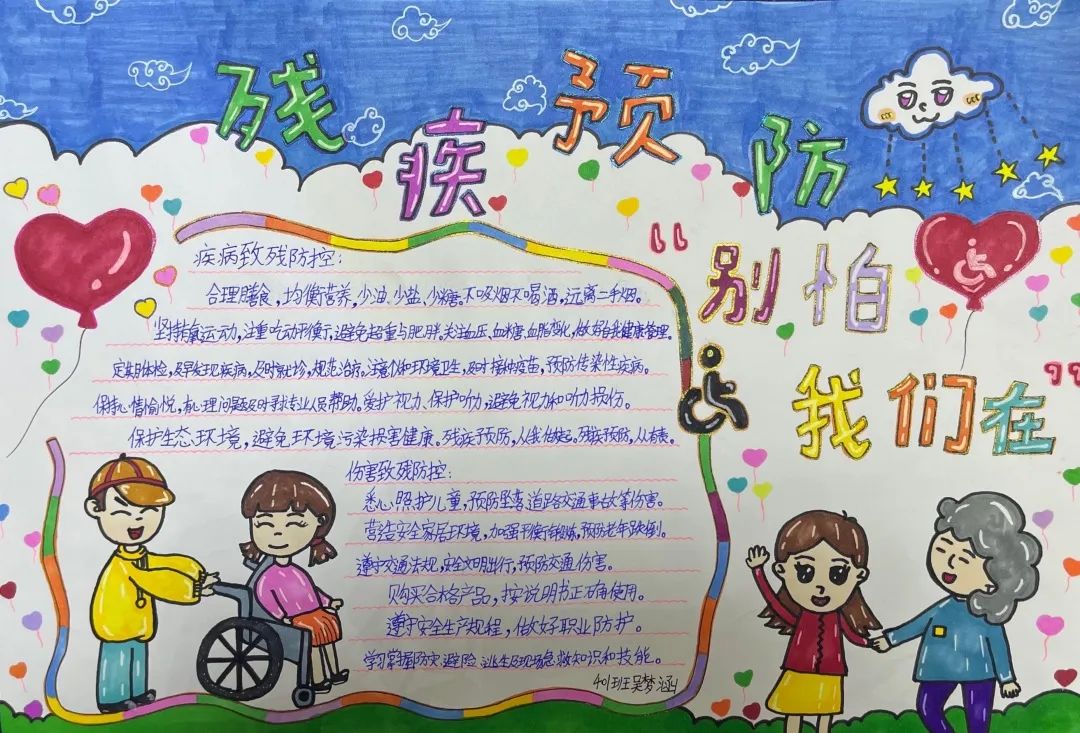 残疾预防
“别怕
我们在”
疾病致残防控:
合理膳食,均衡营养,少油、少盐、少糖,不吸烟不喝酒,远离二手烟。
坚持有氧运动,注重吃动平衡,避免超重与肥胖。关注血压,血糖,血脂变化,做好自我健康管理。
定期体检,及早发现疾病,及时就诊,规范治疗。注意个人和环境卫生,及时接种疫苗,预防传染性疾病。
保持心情愉悦,有心理问题及时寻求专业人员帮助。爱护视力、保护听力,避免视力和听力损伤。
保护生态环境,避免环境污染损害健康。残疾预防,从我做起。残疾预防,从有责。
伤害致残防控:
悉心照护儿童,预防坠落、道路交通事故等伤害。
营造安全家居环境,加强平衡锻炼,预防老年跌倒。
遵守交通法规,安全文明出行,预防交通伤害。
购买合格产品,按说明书正确使用。
遵守安全生产规程,做好职业防护。
学习掌握防灾避险、逃生及现场急救知识和技能。
401班吴梦涵